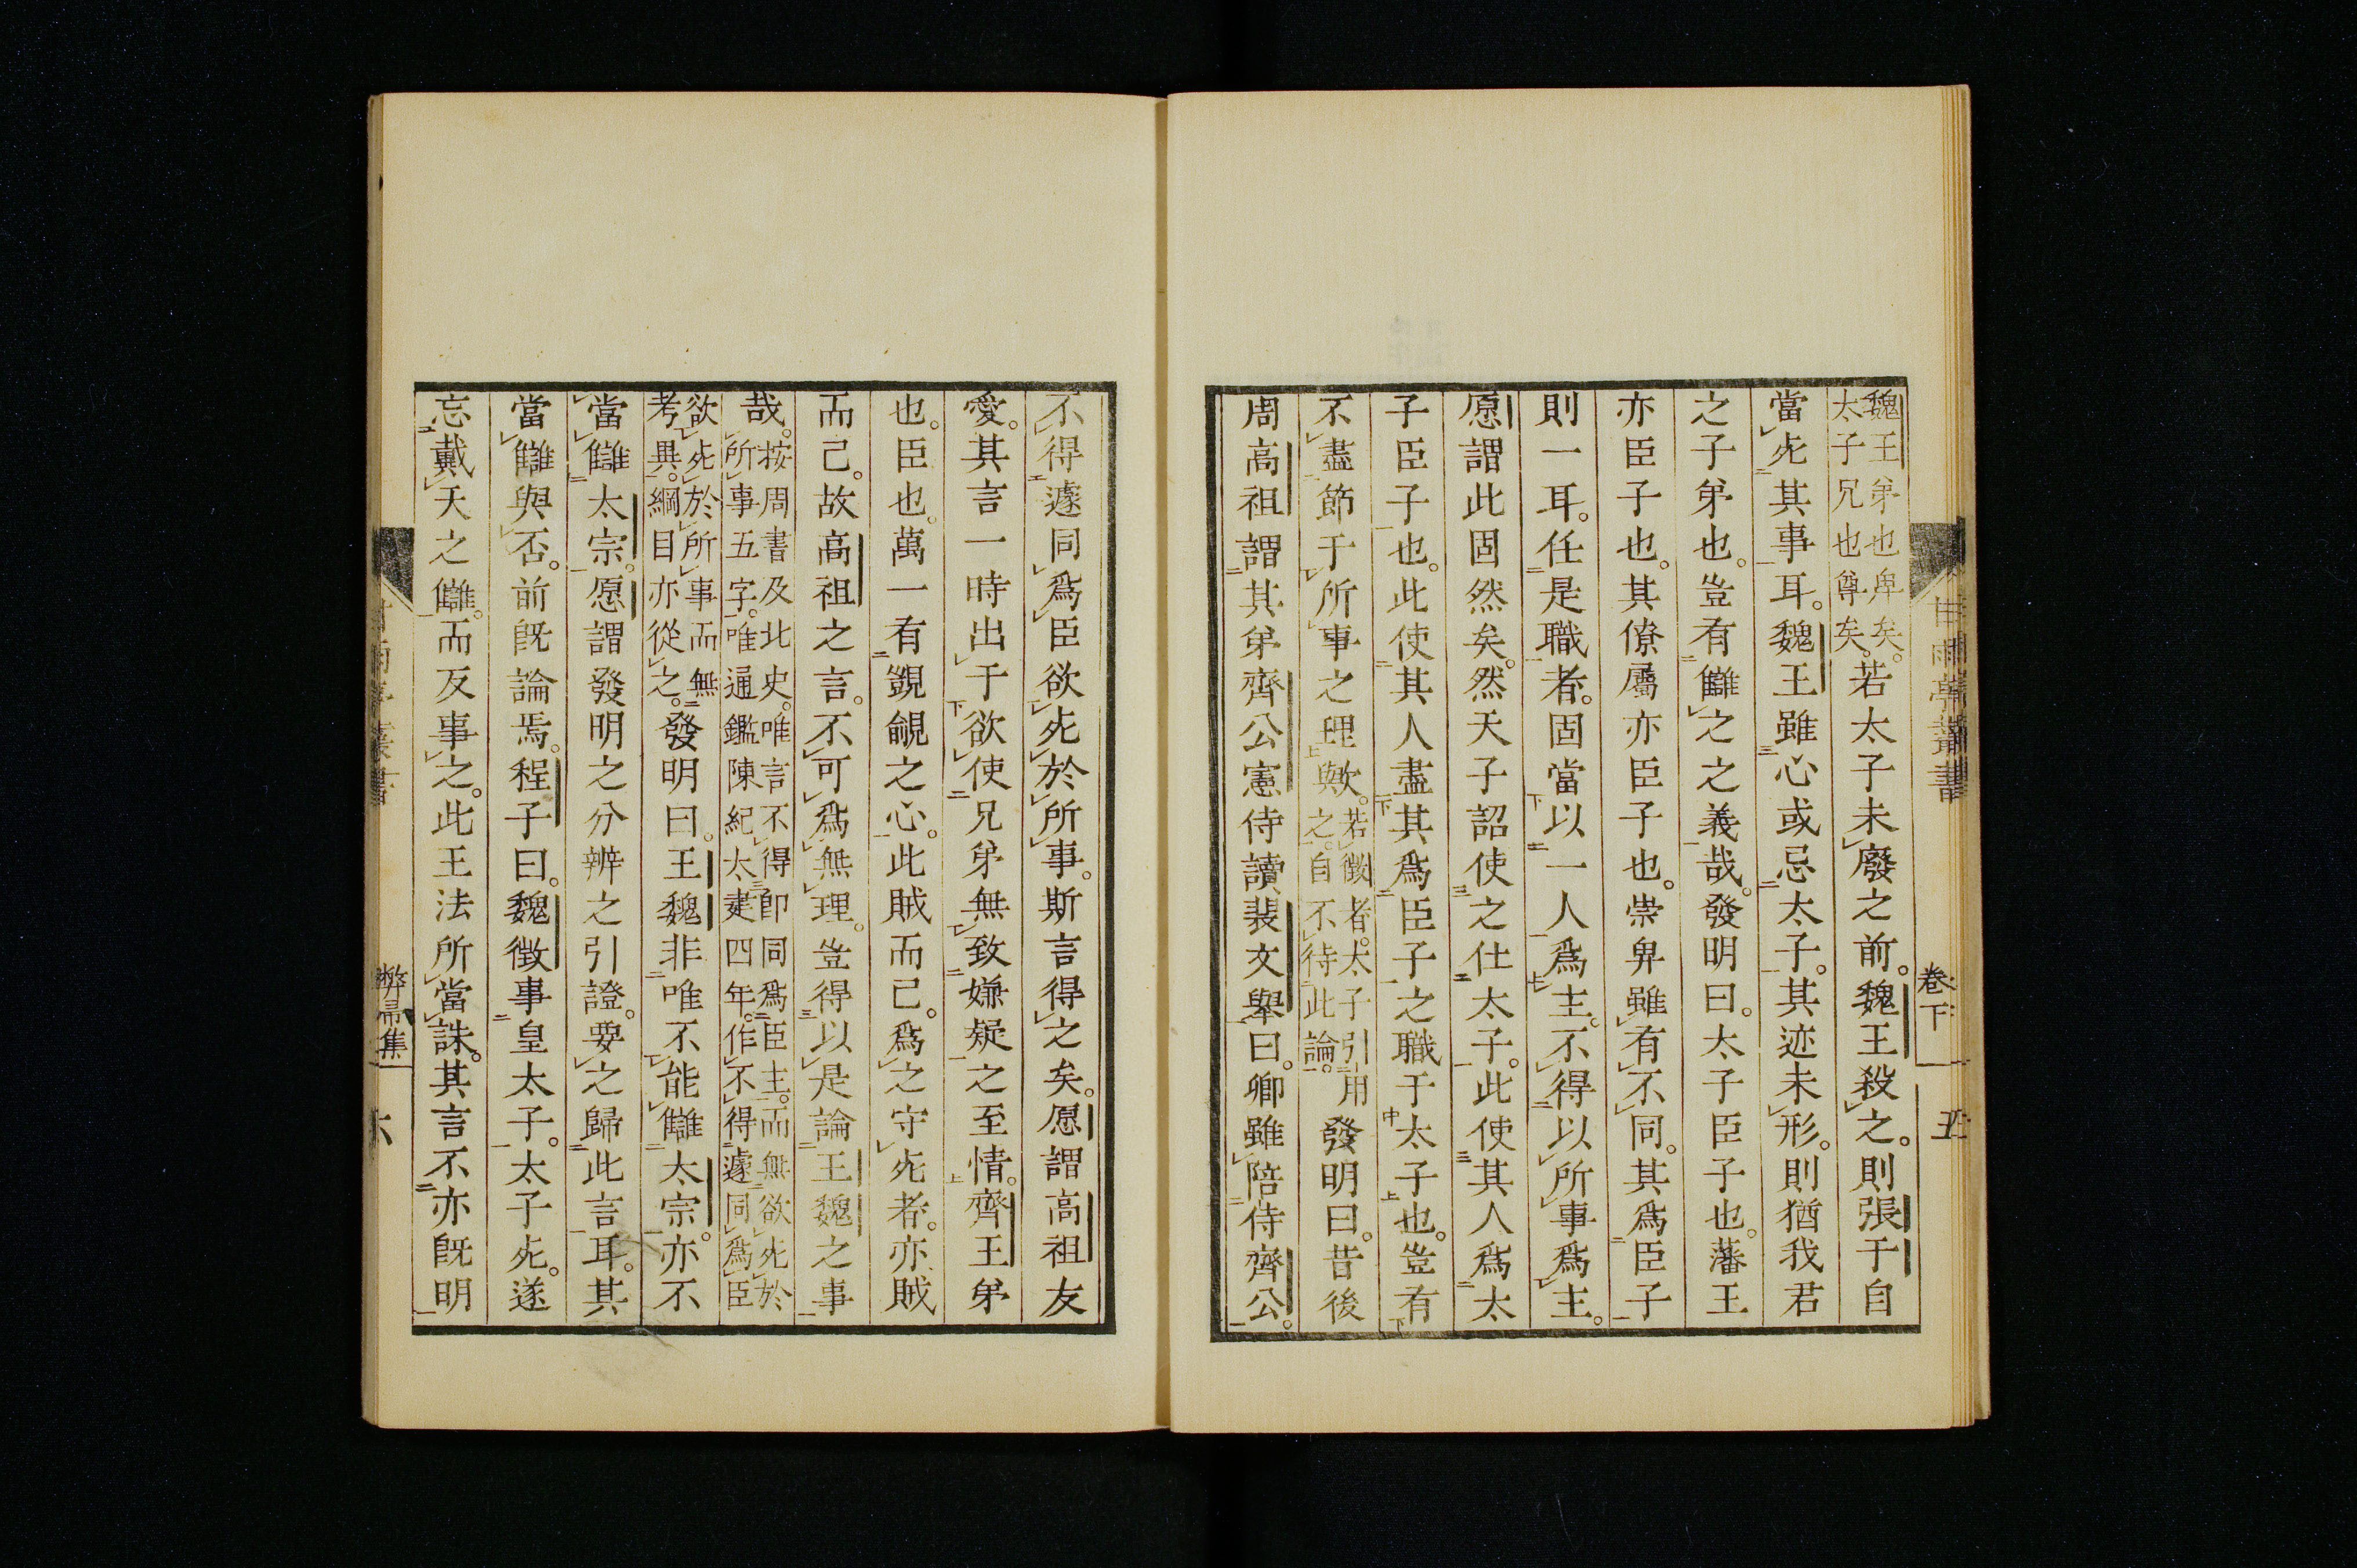 魏王弟也卑矣。
太子兄也尊矣。
若太子未廢之前。魏王殺之。則張于自
當死其事耳。魏王雖心或忌太子。其迹未形。則猶我君
之子弟也。豈有讎之之義哉。發明曰。太子臣子也。藩王
亦臣子也。其僚屬亦臣子也。崇卑雖有不同。其爲臣子
則一耳。任是職者。固當以一人爲主。不得以所事爲主。
愿謂此固然矣。然天子詔使之仕太子。此使其人爲太
子臣子也。此使其人盡其爲臣子之職于太子也。豈有
不盡節于所事之理歟。
若徵者。太子引用
之。自不待此論。
發明曰。昔後
周高祖謂其弟齊公憲侍讀裴文舉曰。卿雖陪侍齊公。
卷下
五
不得遽同爲臣欲死於所事。斯言得之矣。愿謂高祖友
愛。其言一時出于欲使兄弟無致嫌疑之至情。齊王弟
也。臣也。萬一有覬覦之心。此賊而已。爲之守死者。亦賊
而已。故高祖之言。不可爲無理。豈得以是論王魏之事
哉。
按周書及北史。唯言不得即同爲臣主。而無欲死於
所事五字。唯通鑑陳紀太建四年。作不得遽同爲臣
欲死於所事而無
考異。綱目亦從之。
發明曰。王魏非唯不能讎太宗。亦不
當讎太宗。愿謂發明之分辨之引證。要之歸此言耳。其
當讎與否。前既論焉。程子曰。魏徵事皇太子。太子死。遂
忘戴天之讎。而反事之。此王法所當誅。其言不亦既明
弊帚集
六